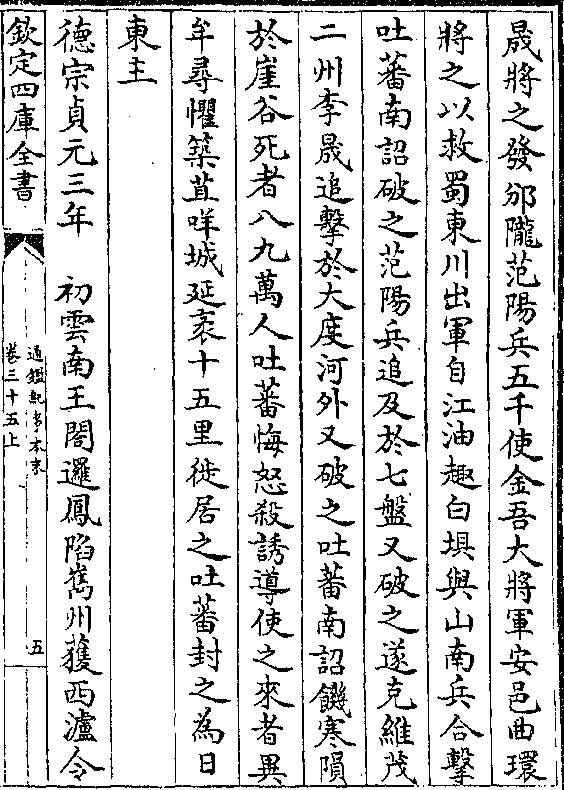 晟將之發邠隴范陽兵五千使金吾大將軍安邑曲環
將之以救蜀東川出軍自江油趣白垻與山南兵合擊
吐蕃南詔破之范陽兵追及於七盤又破之遂克維茂
二州李晟追擊於大度河外又破之吐蕃南詔饑寒隕
於崖谷死者八九萬人吐蕃悔怒殺誘導使之來者異
牟尋懼築苴咩城延袤十五里徙居之吐蕃封之為日
東王
德宗貞元三年　初雲南王閤邏鳳陷嶲州獲西瀘令
欽定四庫全書
通鑑紀事本末
卷三十五上
五